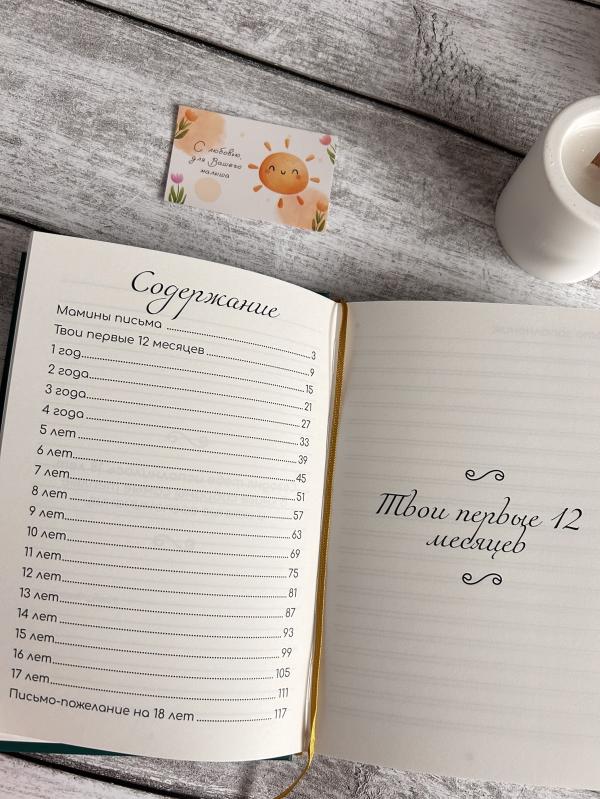 С любовью,
для Вашего
малыша
Содержание
Мамины письма 3
Твои первые 12 месяцев 9
1 год 15
2 года 21
3 года 27
4 года 33
5 лет 39
6 лет 45
7 лет 51
8 лет 57
9 лет 63
10 лет 69
11 лет 75
12 лет 81
13 лет 87
14 лет 93
15 лет 99
16 лет 105
17 лет 111
Письмо-пожелание на 18 лет 117
Твои первые 12
месяцев